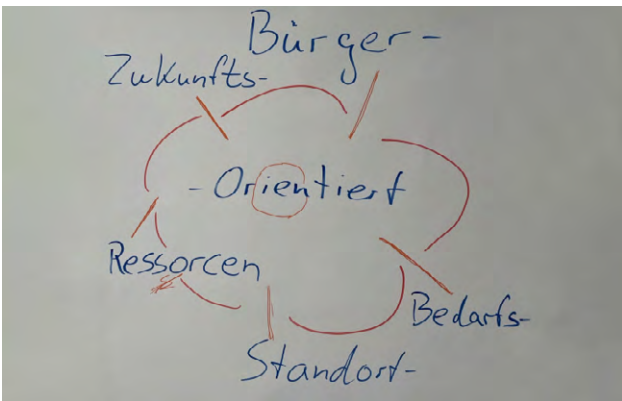 Bürger-
Zukunfts-
-Orientiert
Ressorcen
Bedarfs-
Standort-